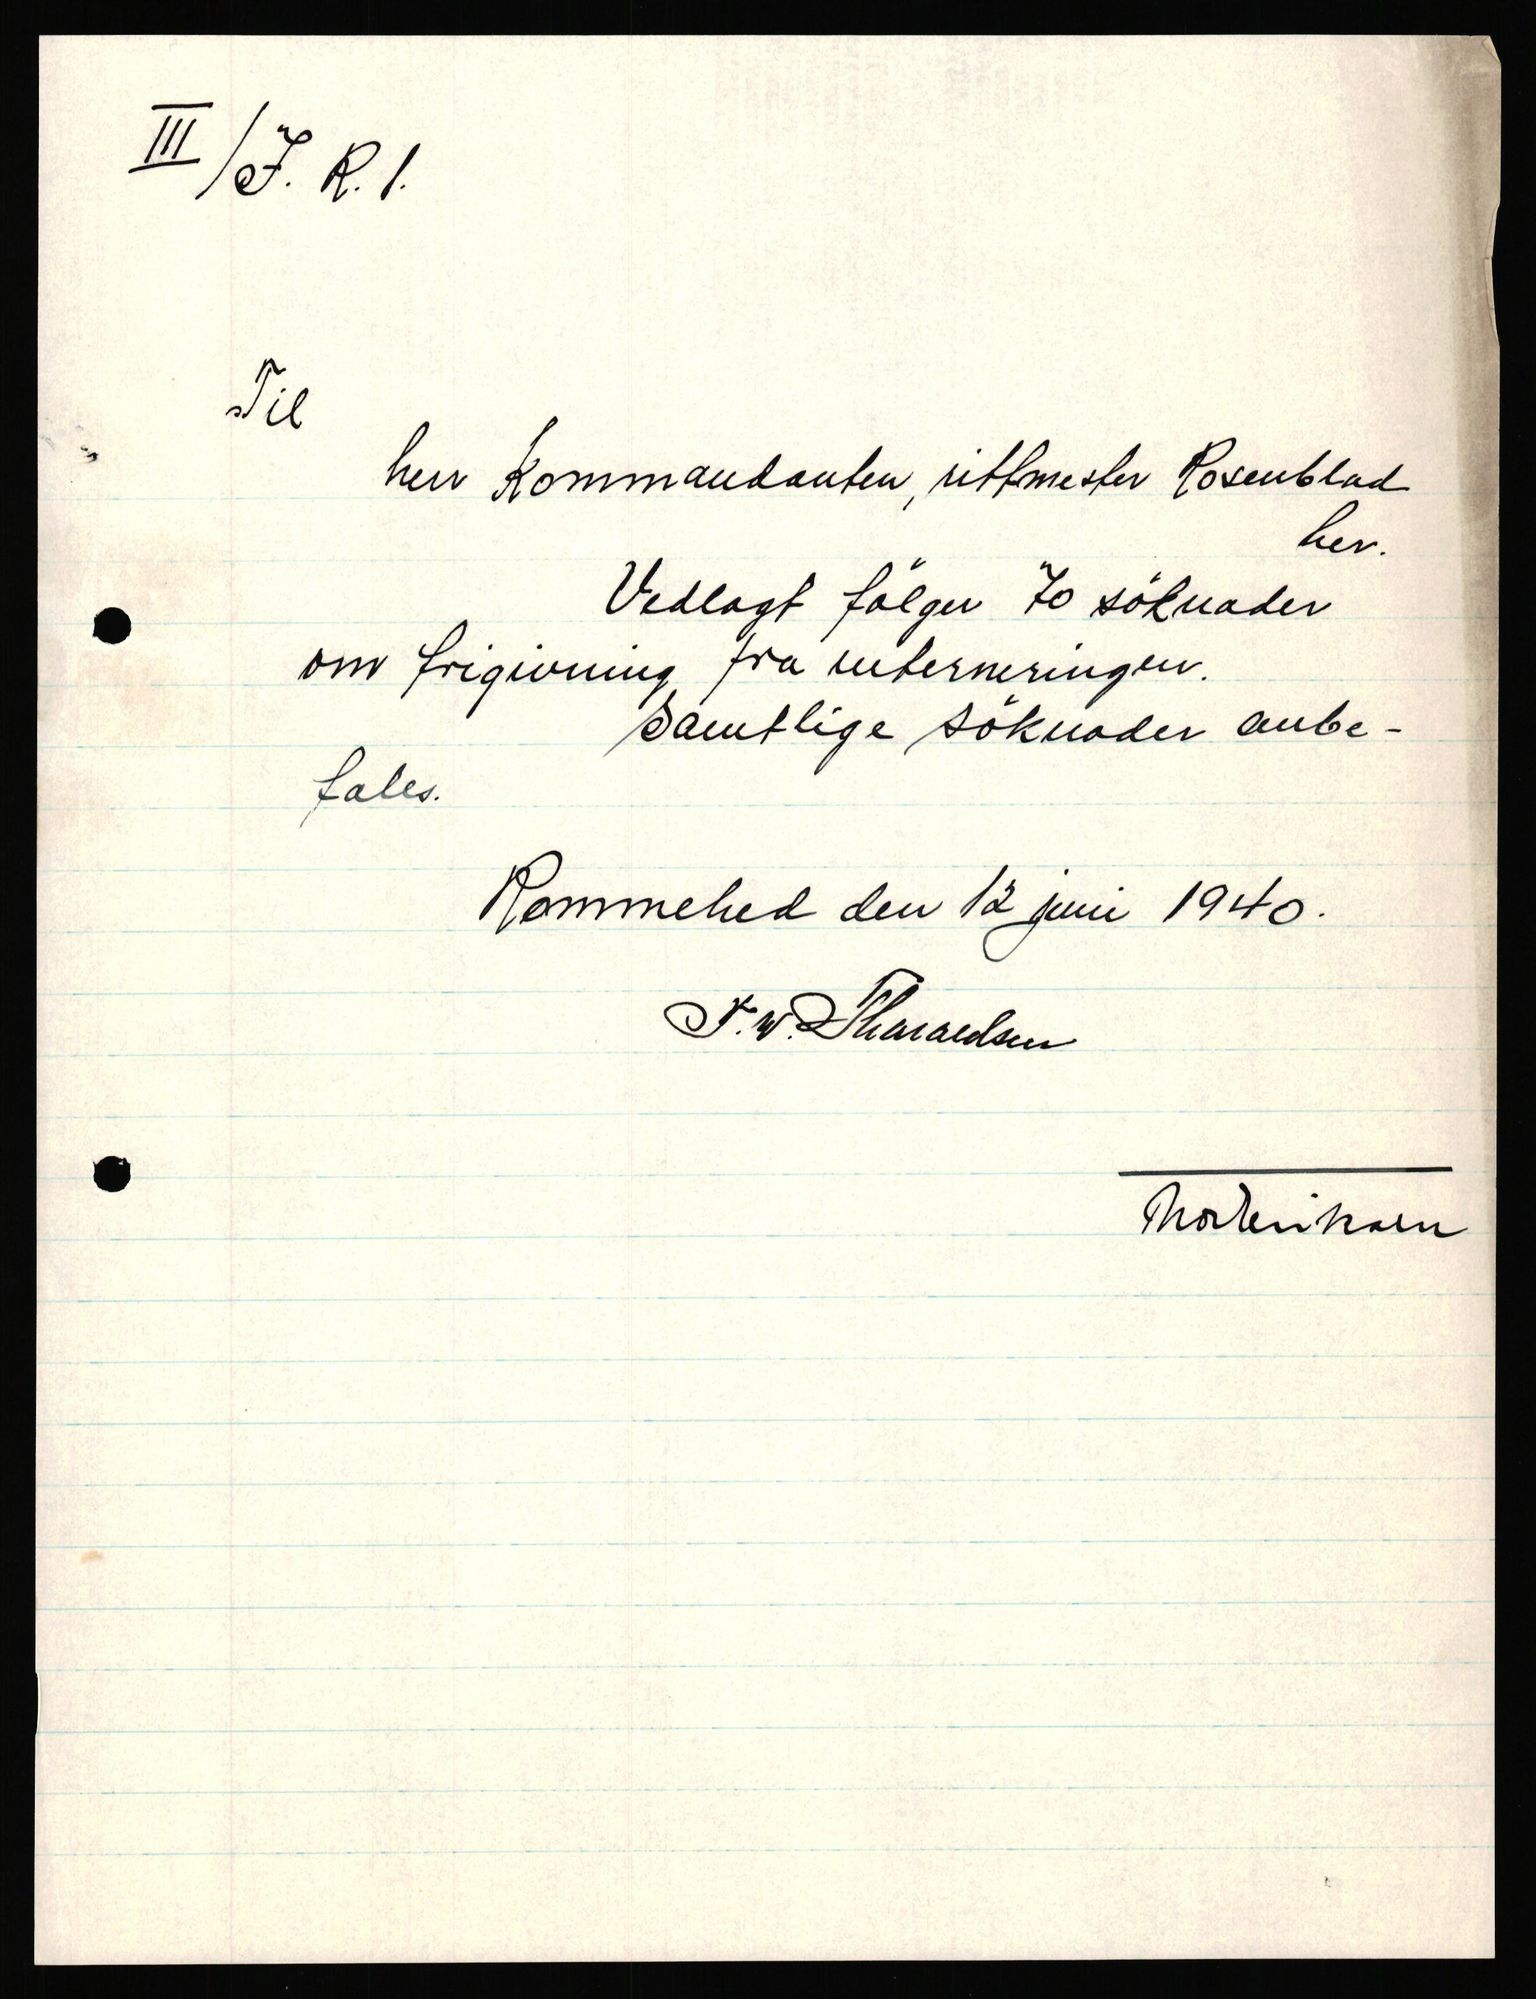 III/J. R. 1.
Til
herr Kommandanten, rittmester Rosenblad
her.
Vedlagt fölger 70 söknader
om frigivning fra interneringen.
Samtlige söknader anbe-
fales.
Rommehed den 12 juni 1940.
T. W. Tharaldsen